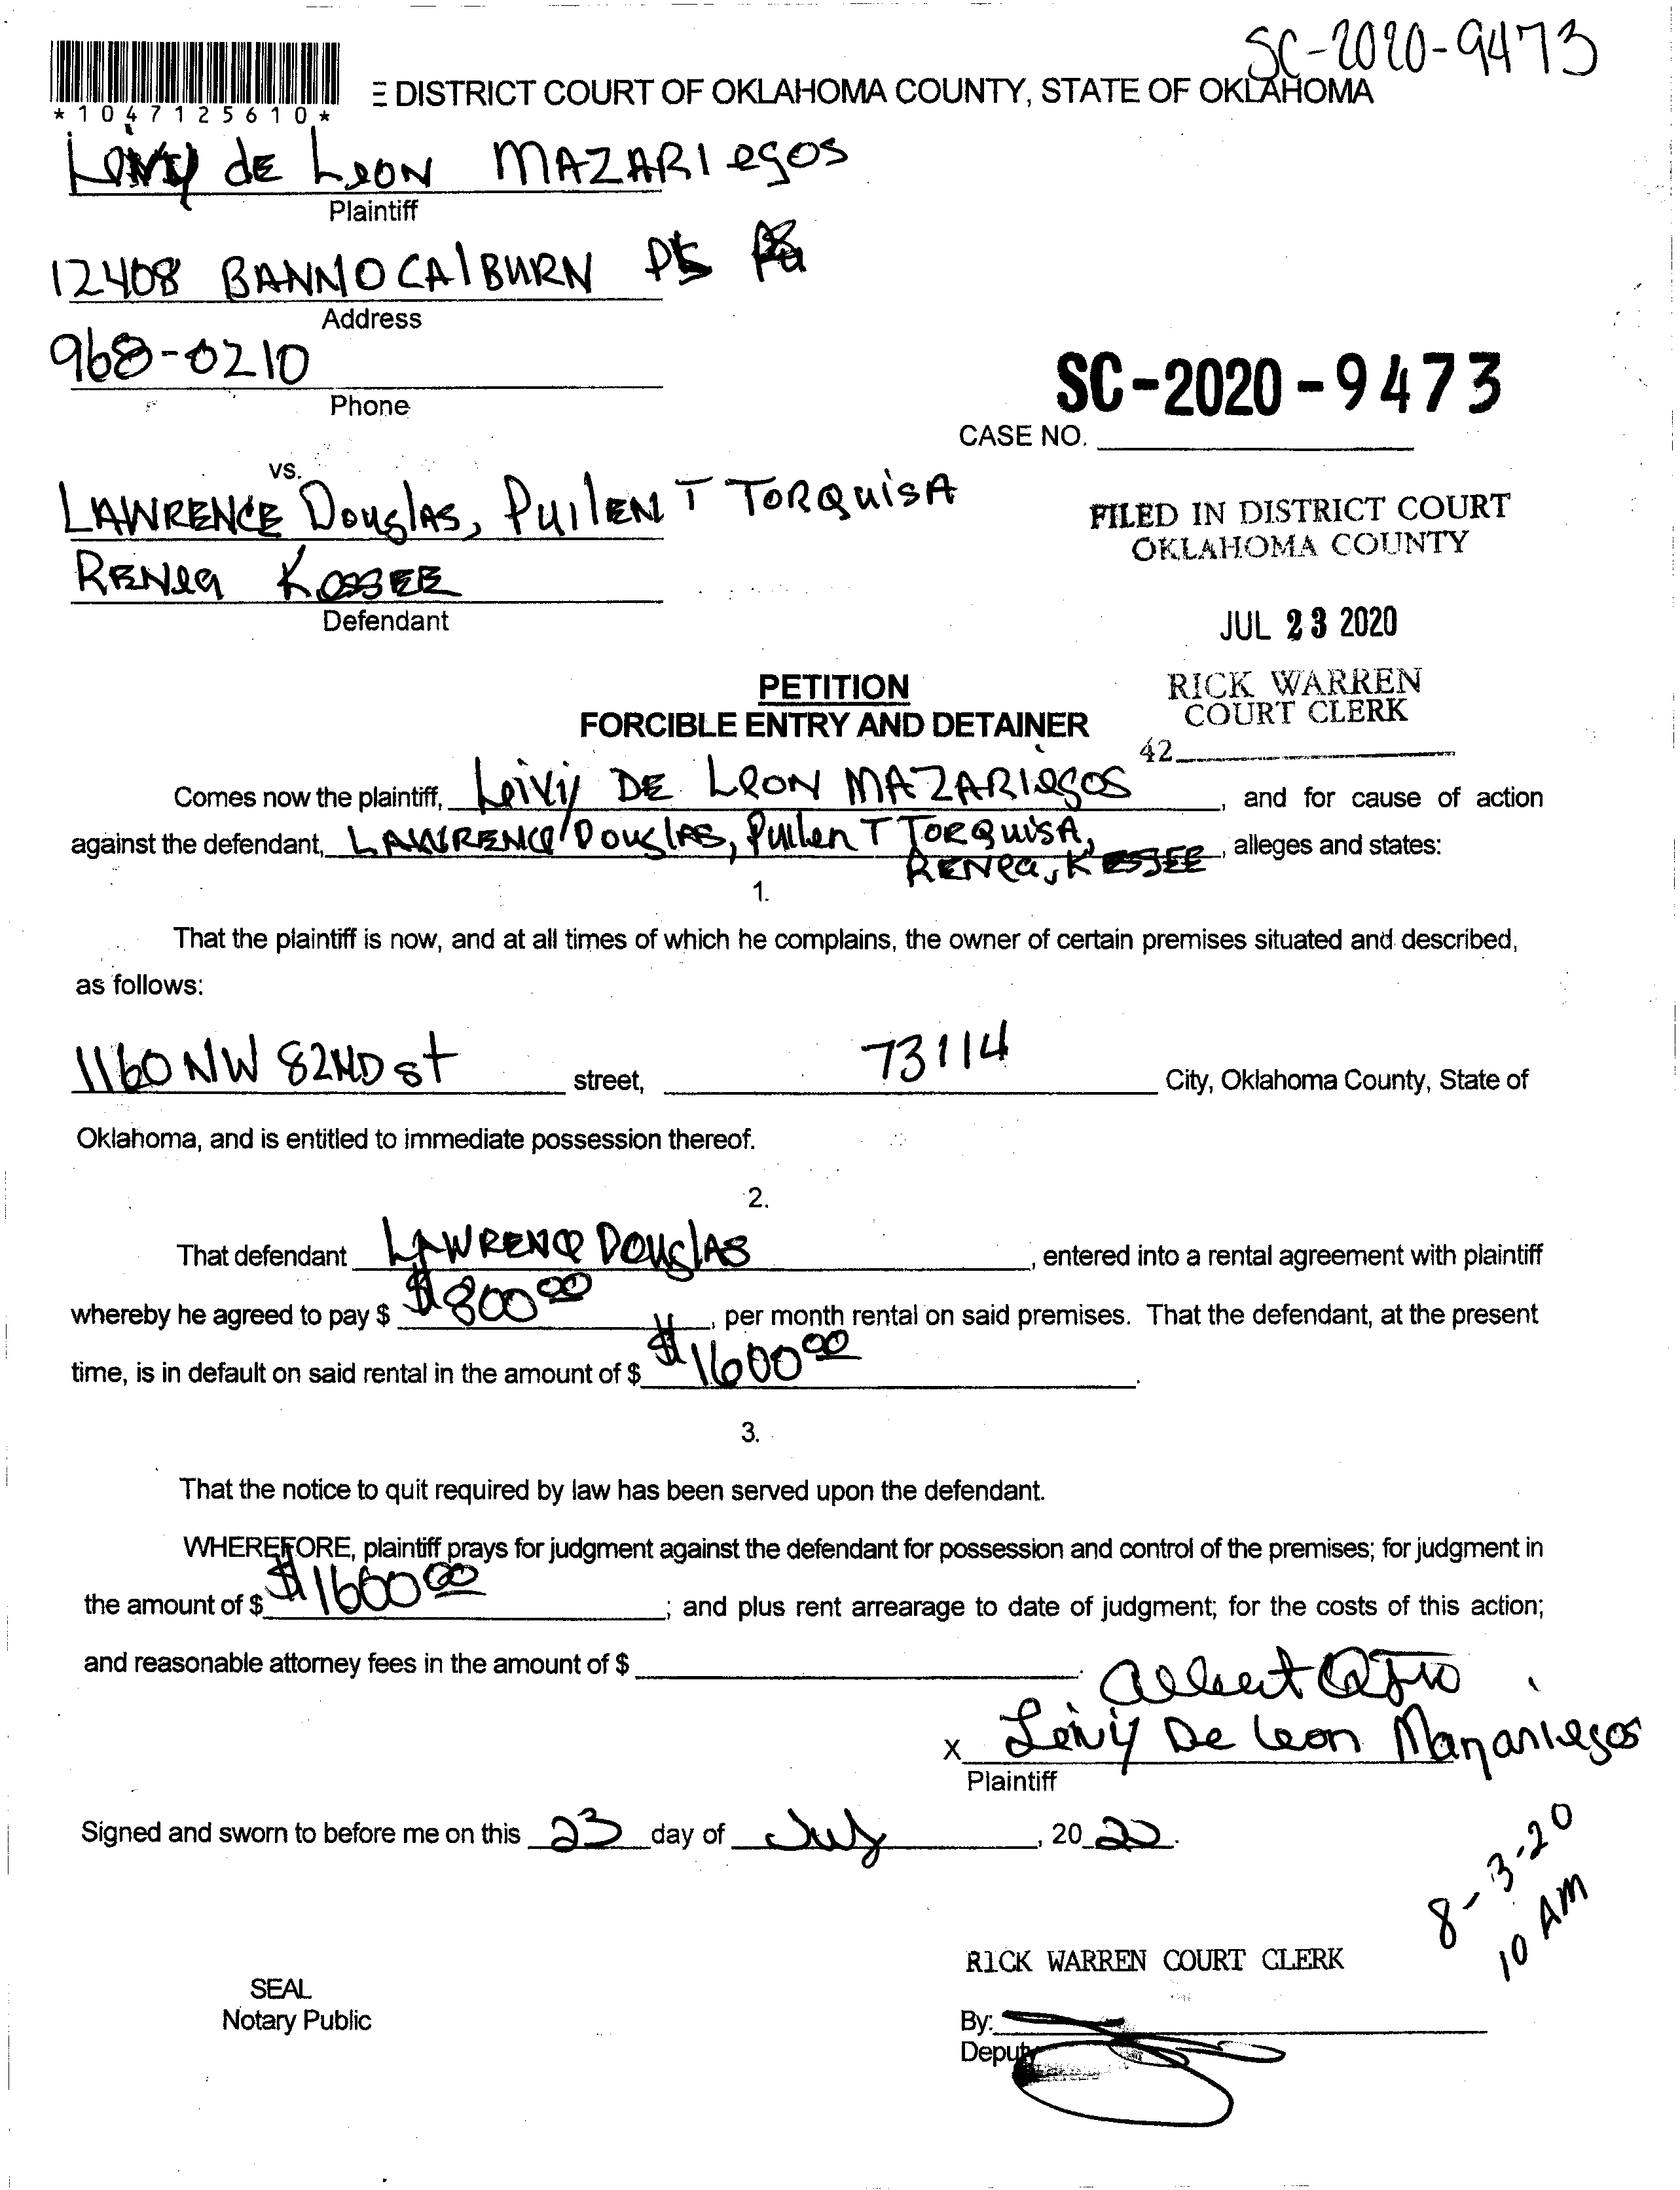 SC-2020-9473
E DISTRICT COURT OF OKLAHOMA COUNTY, STATE OF OKLAHOMA
*1047125610*
Leivy de Leon MAZARIegos
Plaintiff
12408 BANNOCAlBURN
Address
968-0210
Phone
SC-2020-9473
CASE NO.
vs.
LAWRENCE Douglas, PullEN T TORQuisA
RENea Kessee
Defendant
FILED IN DISTRICT COURT
OKLAHOMA COUNTY
JUL 23 2020
RICK WARREN
COURT CLERK
42
PETITION
FORCIBLE ENTRY AND DETAINER
Comes now the plaintiff, Leivy DE LEON MAZARIegos, and for cause of action
against the defendant, LAWRENCe Douglas, Pullen T TORQuisA, alleges and states:
RENea, KESSEE
1.
That the plaintiff is now, and at all times of which he complains, the owner of certain premises situated and described,
as follows:
1160 NW 82ND st street, 73114 City, Oklahoma County, State of
Oklahoma, and is entitled to immediate possession thereof.
2.
That defendant LAWRENCe DouglAS, entered into a rental agreement with plaintiff
whereby he agreed to pay $ $800 00, per month rental on said premises. That the defendant, at the present
time, is in default on said rental in the amount of $ $1600 00.
3.
That the notice to quit required by law has been served upon the defendant.
WHEREFORE, plaintiff prays for judgment against the defendant for possession and control of the premises; for judgment in
the amount of $ $1600 00; and plus rent arrearage to date of judgment; for the costs of this action;
and reasonable attorney fees in the amount of $.
Albert
x Leivy De Leon Mazariegos
Plaintiff
Signed and sworn to before me on this 23 day of July, 2020.
8-3-20
10 AM
RICK WARREN COURT CLERK
SEAL
Notary Public
By:
Deputy